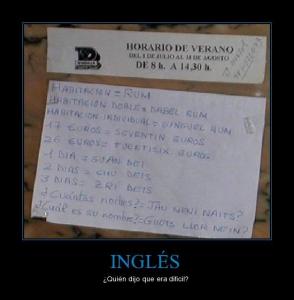 HORARIO DE VERANO
DEL 1 DE JULIO AL 31 DE AGOSTO
DE 8 h. A 14,30 h.
HABITACION = RUM
HABITACION DOBLE = DABEL RUM
HABITACION INDIVIDUAL = SINGUEL RUM
17 EUROS = SEVENTIN EUROS
26 EUROS = TUENTISIX EUROS
1 DIA = GUAN DEI
2 DIAS = CHU DEIS
3 DIAS = ZRI DEIS
¿Cuántas noches? = JAU MENI NAITS?
¿Cuál es su nombre? = GUOTS LLOR NEIN?
INGLÉS
¿Quién dijo que era dificil?